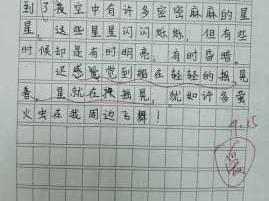 到了夜空中有许多密密麻麻的星
星。这些星星闪闪烁烁，但有些
时候却是有时明亮，有时昏暗。
还感觉觉到船在轻轻的摇晃
着。星就在摇晃，犹如许多萤
火虫在我周边飞舞！
9.15